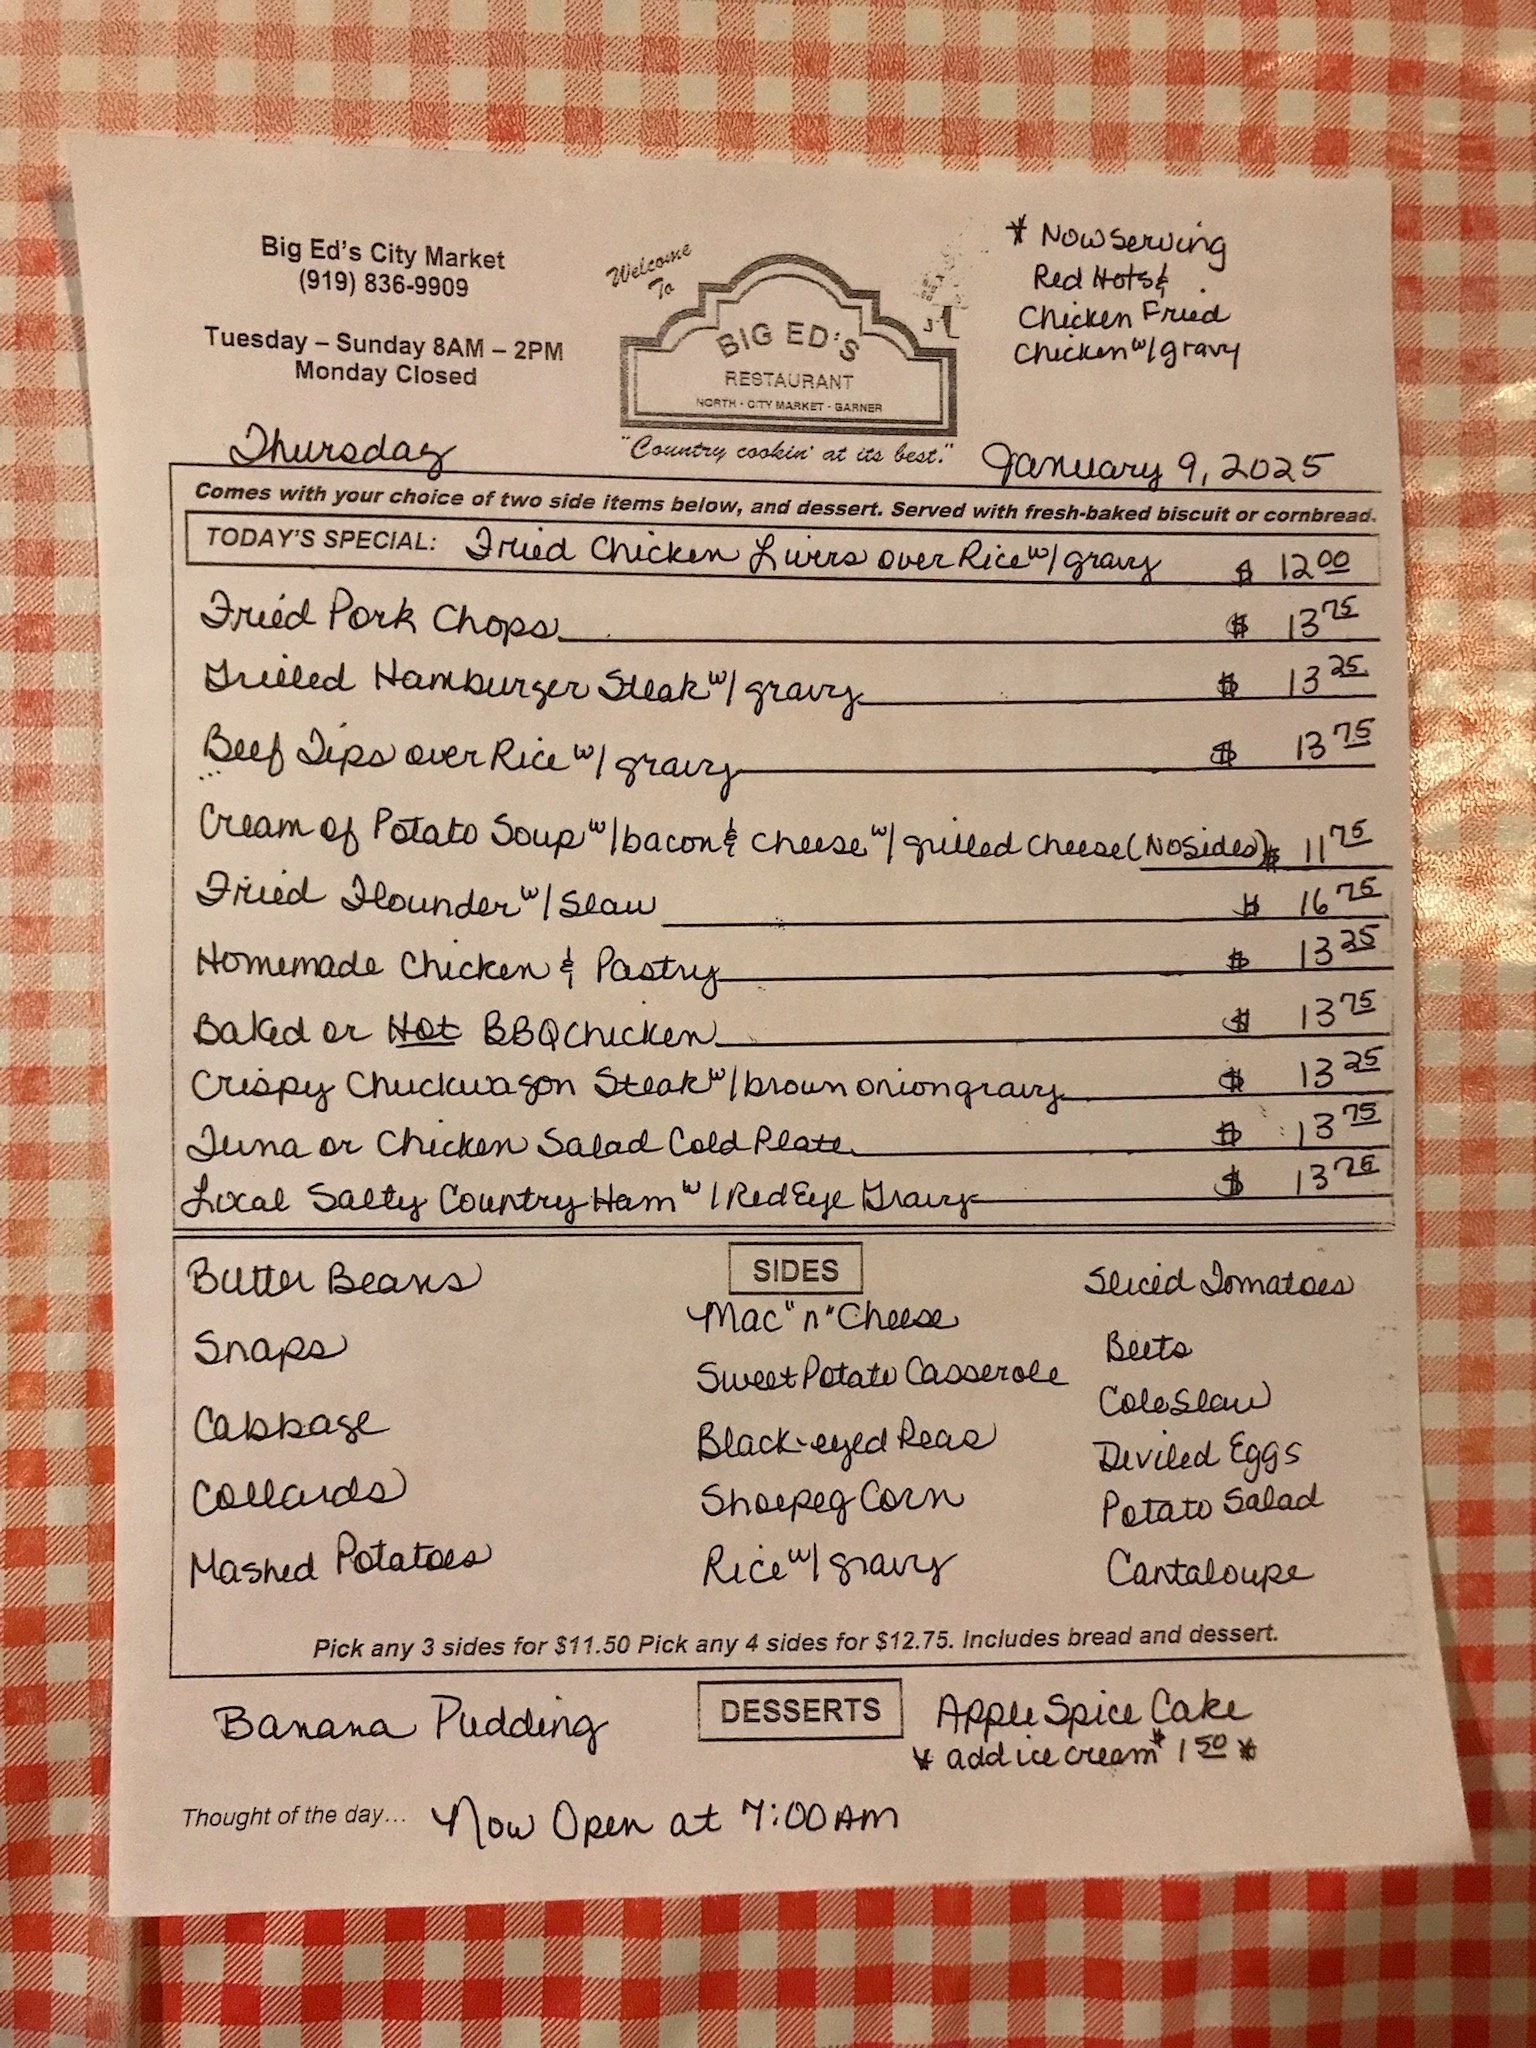 Big Ed's City Market
(919) 836-9909
Tuesday – Sunday 8AM – 2PM
Monday Closed
Welcome
To
BIG ED'S
RESTAURANT
NORTH - CITY MARKET - GARNER
"Country cookin' at its best."
* Now serving
Red Hots &
Chicken Fried
Chicken w/ gravy
Thursday
January 9, 2025
Comes with your choice of two side items below, and dessert. Served with fresh-baked biscuit or cornbread.
TODAY'S SPECIAL: Fried Chicken Livers over Rice w/ gravy $ 12 00
Fried Pork Chops $ 13 75
Grilled Hamburger Steak w/ gravy $ 13 25
Beef Tips over Rice w/ gravy $ 13 75
Cream of Potato Soup w/ bacon & cheese w/ grilled cheese (No Sides) $ 11 75
Fried Flounder w/ Slaw $ 16 75
Homemade Chicken & Pastry $ 13 25
Baked or Hot BBQ Chicken $ 13 75
Crispy Chuckwagon Steak w/ brown onion gravy $ 13 25
Tuna or Chicken Salad Cold Plate $ 13 75
Local Salty Country Ham w/ Red Eye Gravy $ 13 75
SIDES
Butter Beans
Snaps
Cabbage
Collards
Mashed Potatoes
Mac "n" Cheese
Sweet Potato Casserole
Black-eyed Peas
Shoepeg Corn
Rice w/ gravy
Sliced Tomatoes
Beets
Cole Slaw
Deviled Eggs
Potato Salad
Cantaloupe
Pick any 3 sides for $11.50 Pick any 4 sides for $12.75. Includes bread and dessert.
DESSERTS
Banana Pudding
Apple Spice Cake
* add ice cream $ 1 50 *
Thought of the day... Now Open at 7:00 AM